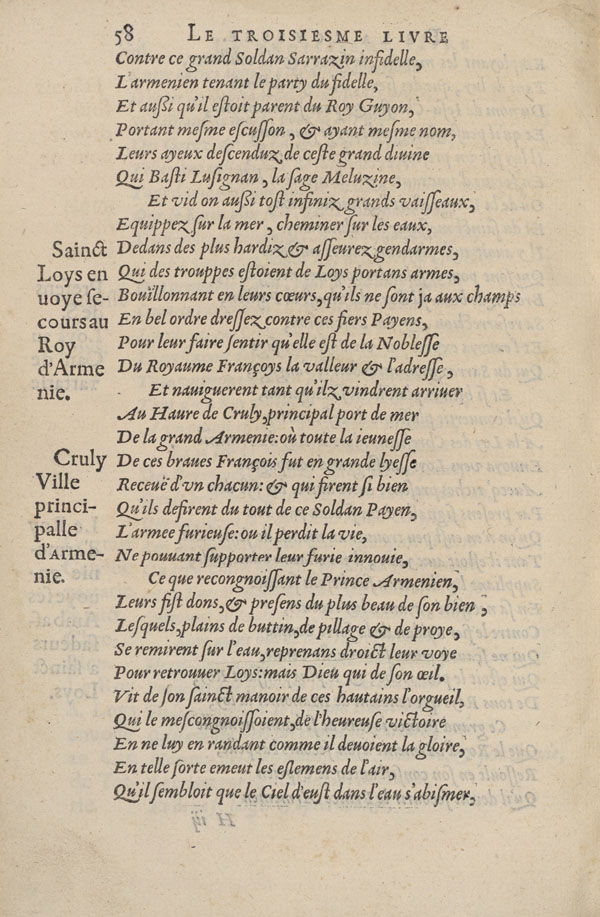 58 LE TROISIESME LIVRE
Contre ce grand Soldan Sarrazin infidelle,
L'armenien tenant le party du fidelle,
Et außi qu'il estoit parent du Roy Guyon,
Portant mesme escusson, & ayant mesme nom,
Leurs ayeux descenduz de ceste grand diuine
Qui Basti Lusignan, la sage Meluzine,
Et vid on außi tost infiniz grands vaisseaux,
Equippez sur la mer, cheminer sur les eaux,
Dedans des plus hardiz & asseurez gendarmes,
Qui des trouppes estoient de Loys portans armes,
Bouillonnant en leurs cœurs, qu'ils ne sont ja aux champs
En bel ordre dressez contre ces fiers Payens,
Pour leur faire sentir qu'elle est de la Noblesse
Du Royaume Françoys la valleur & l'adresse,
Et nauiguerent tant qu'ilz vindrent arriuer
Au Haure de Cruly, principal port de mer
De la grand Armenie: où toute la ieunesse
De ces braues François fut en grande lyesse
Receuë d'vn chacun: & qui firent si bien
Qu'ils defirent du tout de ce Soldan Payen,
L'armee furieuse: ou il perdit la vie,
Ne pouuant supporter leur furie innouie,
Ce que recongnoissant le Prince Armenien,
Leurs fist dons, & presens du plus beau de son bien,
Lesquels, plains de buttin, de pillage & de proye,
Se remirent sur l'eau, reprenans droict leur voye
Pour retrouuer Loys: mais Dieu qui de son œil.
Vit de son sainct manoir de ces hautains l'orgueil,
Qui le mescongnoissoient, de l'heureuse victoire
En ne luy en randant comme il deuoient la gloire,
En telle sorte emeut les eslemens de l'air,
Qu'il sembloit que le Ciel d'eust dans l'eau s'abismer,
Sainct
Loys en
uoye se-
cours au
Roy
d'Arme
nie.
Cruly
Ville
princi-
palle
d'Arme-
nie.